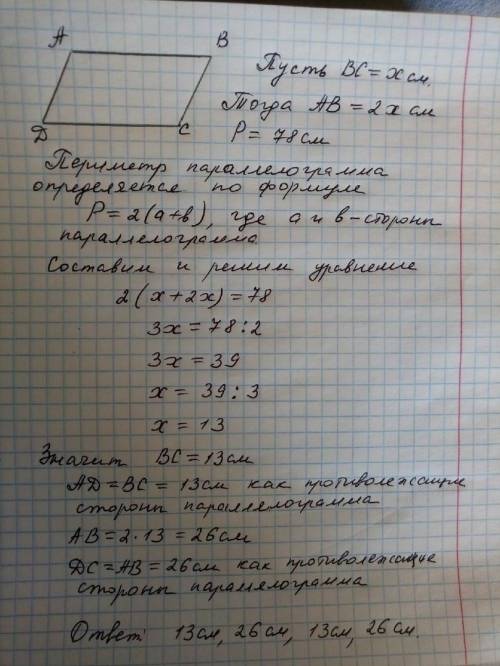 A
B
D
C
Пусть BC = x см.
Тогда AB = 2x см
P = 78 см
Периметр параллелограмма
определяется по формуле
P = 2(a+b), где a и b - стороны
параллелограмма
Составим и решим уравнение
2(x+2x) = 78
3x = 78:2
3x = 39
x = 39:3
x = 13
Значит BC = 13 см
AD = BC = 13 см как противолежащие
стороны параллелограмма
AB = 2·13 = 26 см
DC = AB = 26 см как противолежащие
стороны параллелограмма
Ответ: 13 см, 26 см, 13 см, 26 см.